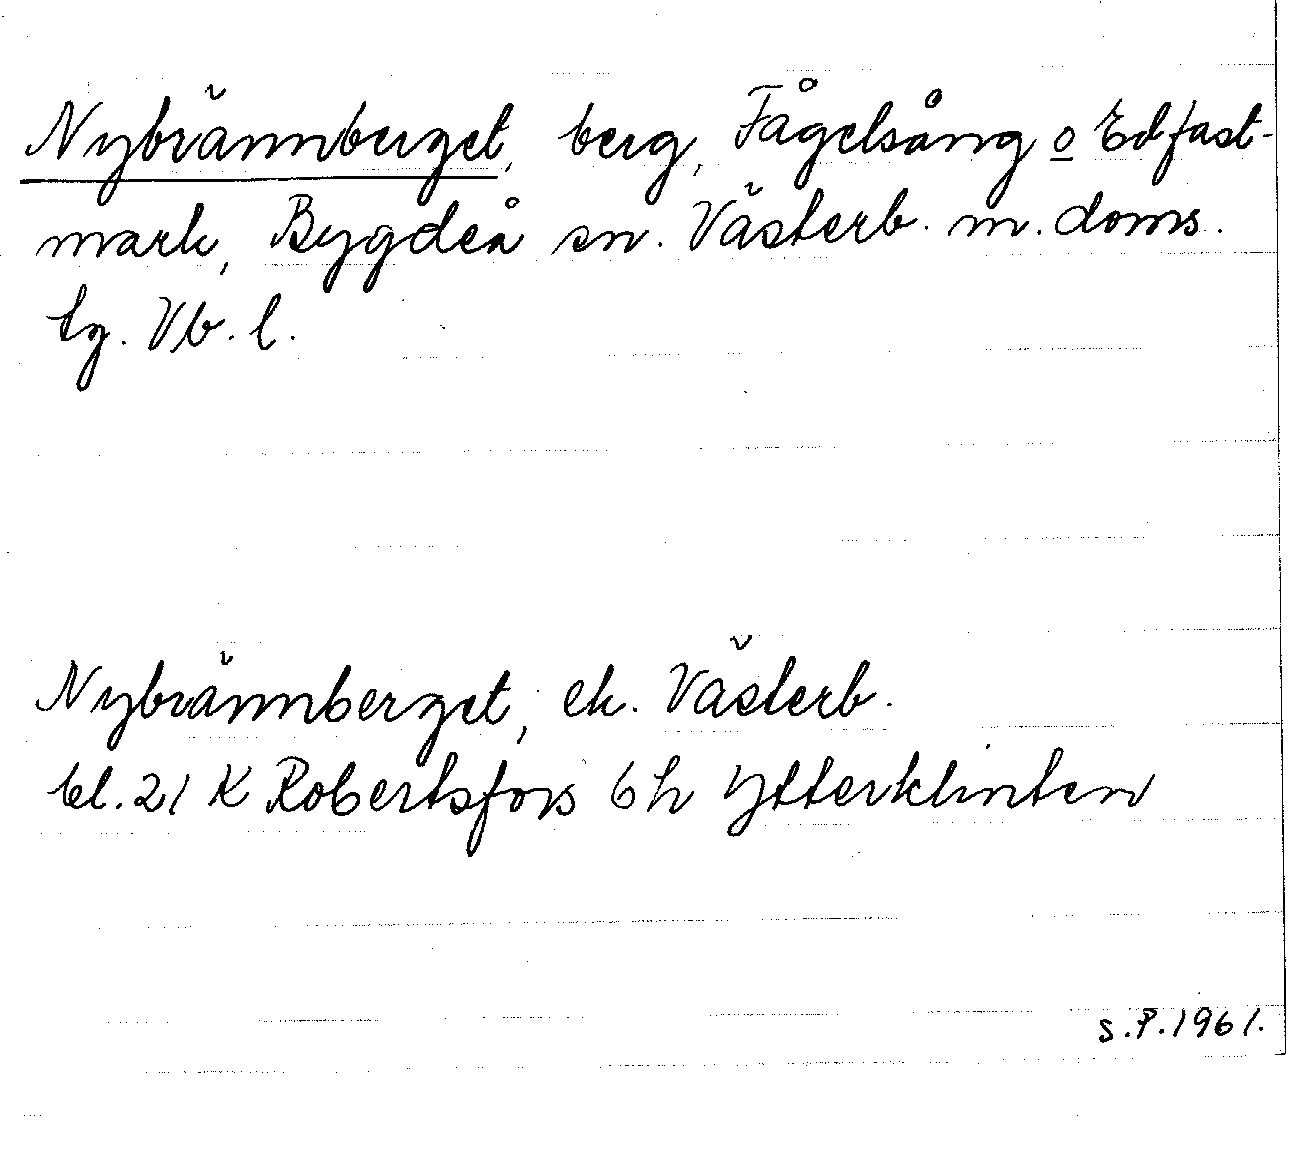 Nybrännberget, berg, Fågelsång o Edfast-
mark, Bygdeå sn. Västerb. m. doms.
tg. Vb. l.
Nybrännberget, ek. Västerb.
bl. 21 K Robertsfors 6 h Ytterklinten
S.P. 1961.